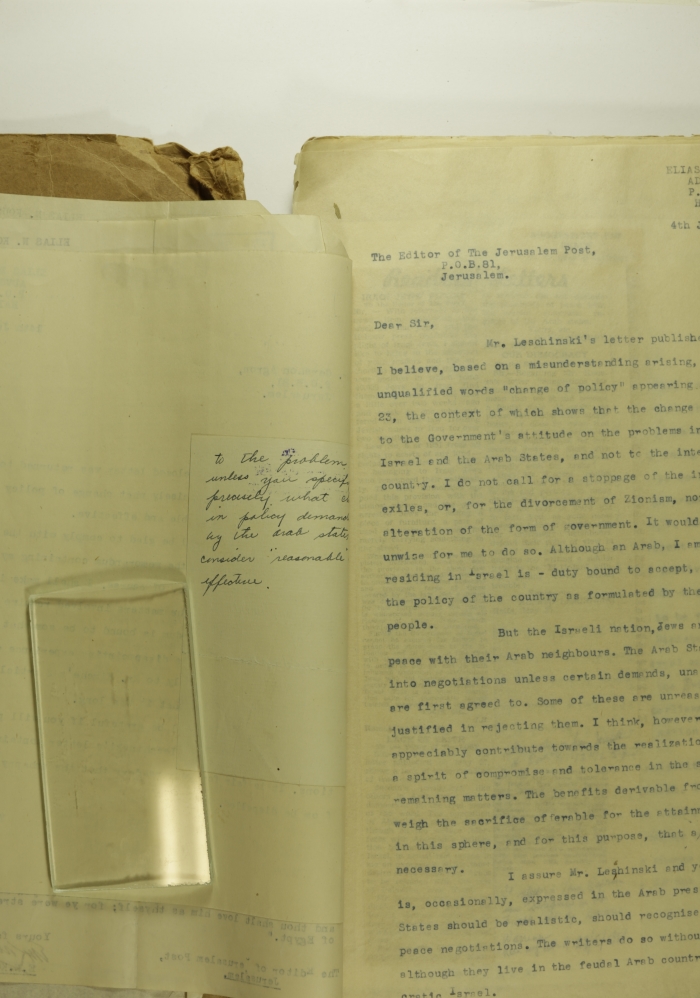 to the problem
unless your specif
precisely, what c
in policy demand
by the arab state
consider "reasonable"
effective.
and thou shalt love him as thyself; for ye were str
of Egypt".
Yours
The Editor of Jerusalem Post,
Jerusalem.
ELIAS
AD
P.
H
4th J
The Editor of The Jerusalem Post,
P.O.B.81,
Jerusalem.
Dear Sir,
Mr. Leschinski's letter publishe
I believe, based on a misunderstanding arising,
unqualified words "change of policy" appearing
23, the context of which shows that the change
to the Government's attitude on the problems in
Israel and the Arab States, and not to the inte
country. I do not call for a stoppage of the in
exiles, or, for the divorcement of Zionism, no
alteration of the form of government. It would
unwise for me to do so. Although an Arab, I am
residing in Israel is - duty bound to accept,
the policy of the country as formulated by the
people.
But the Israeli nation, Jews an
peace with their Arab neighbours. The Arab Sta
into negotiations unless certain demands, una
are first agreed to. Some of these are unreas
justified in rejecting them. I think, however
appreciably contribute towards the realizatio
a spirit of compromise and tolerance in the s
remaining matters. The benefits derivable fro
weigh the sacrifice offerable for the attainm
in this sphere, and for this purpose, that a
necessary.
I assure Mr. Leshinski and y
is, occasionally, expressed in the Arab pres
States should be realistic, should recognise
peace negotiations. The writers do so withou
although they live in the feudal Arab countr
cratic Israel.